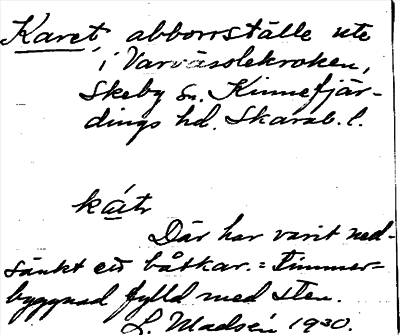 Karet, abborrställe ute
i Varvåsslekroken,
Skeby sn. Kinnefjär-
dings hd. Skarab. l.
kátr
Där har varit ned-
sänkt ett båtkar. = Timmer=
byggnad fylld med sten.
L. Madsén 1930.